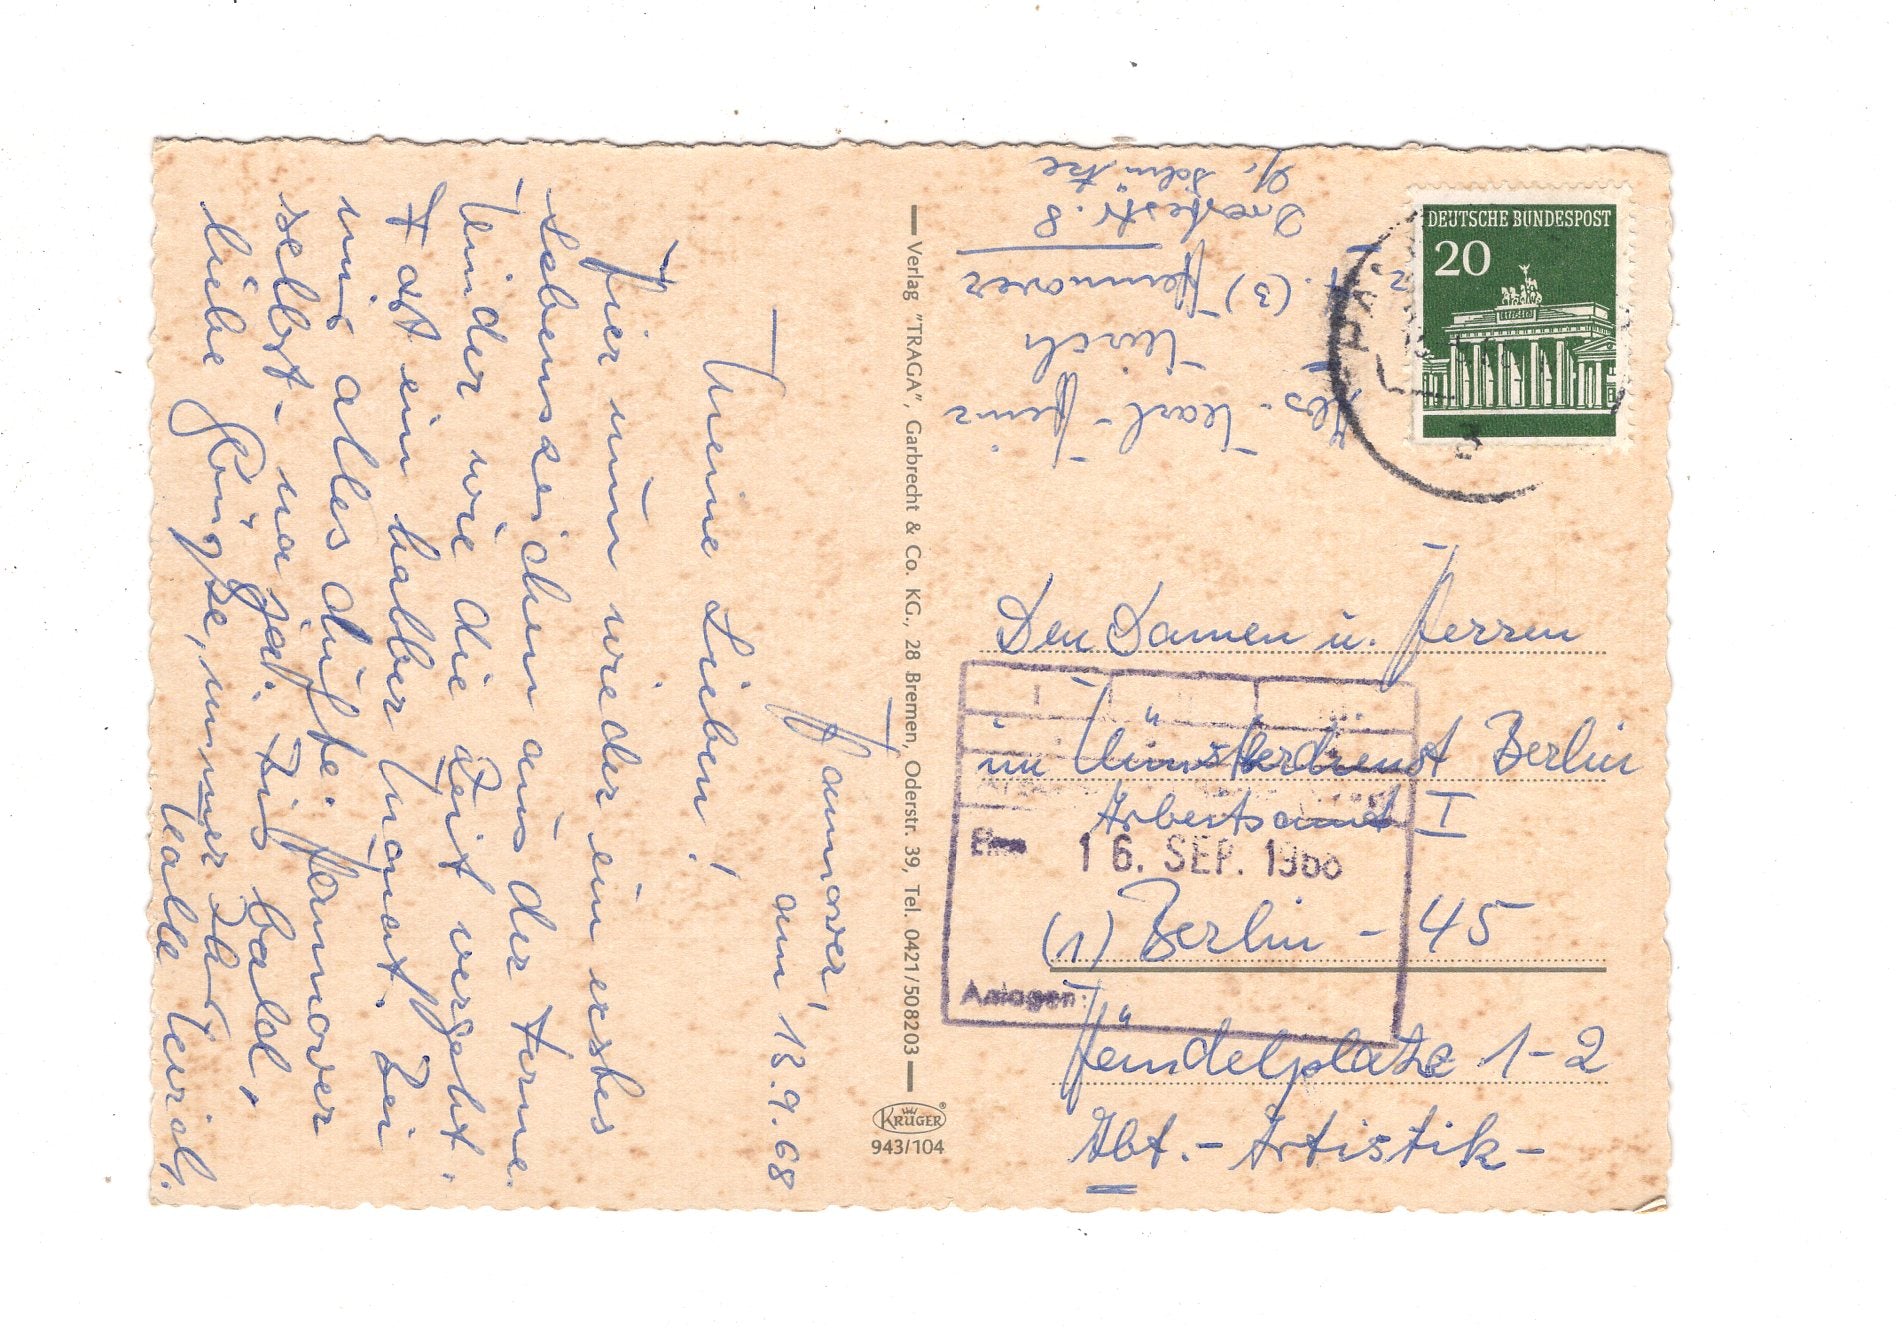 Hannover,
am 13.9.68
Meine Lieben!
Hier nun wieder ein erstes
Lebenszeichen aus der Ferne.
Kinder wie die Zeit vergeht.
Fast ein halber Monat. Bei
uns alles dufte. Hannover
selbst - na ja. Bis bald,
liebe Grüße, immer Ihr
Kalle Kurich.
Verlag "TRAGA", Garbrecht & Co. KG., 28 Bremen, Oderstr. 39, Tel. 0421/508203
KRÜGER
943/104
Abs. Karl-Heinz
Kurich
z. Z. (3) Hannover
Drostestr. 8
b/
DEUTSCHE BUNDESPOST
20
Den Damen u. Herren
im Künstlerdienst Berlin
Arbeitsamt I
(1) Berlin - 45
Händelplatz 1-2
Abt. - Artistik -
Eing.
16. SEP. 1968
Anlagen: